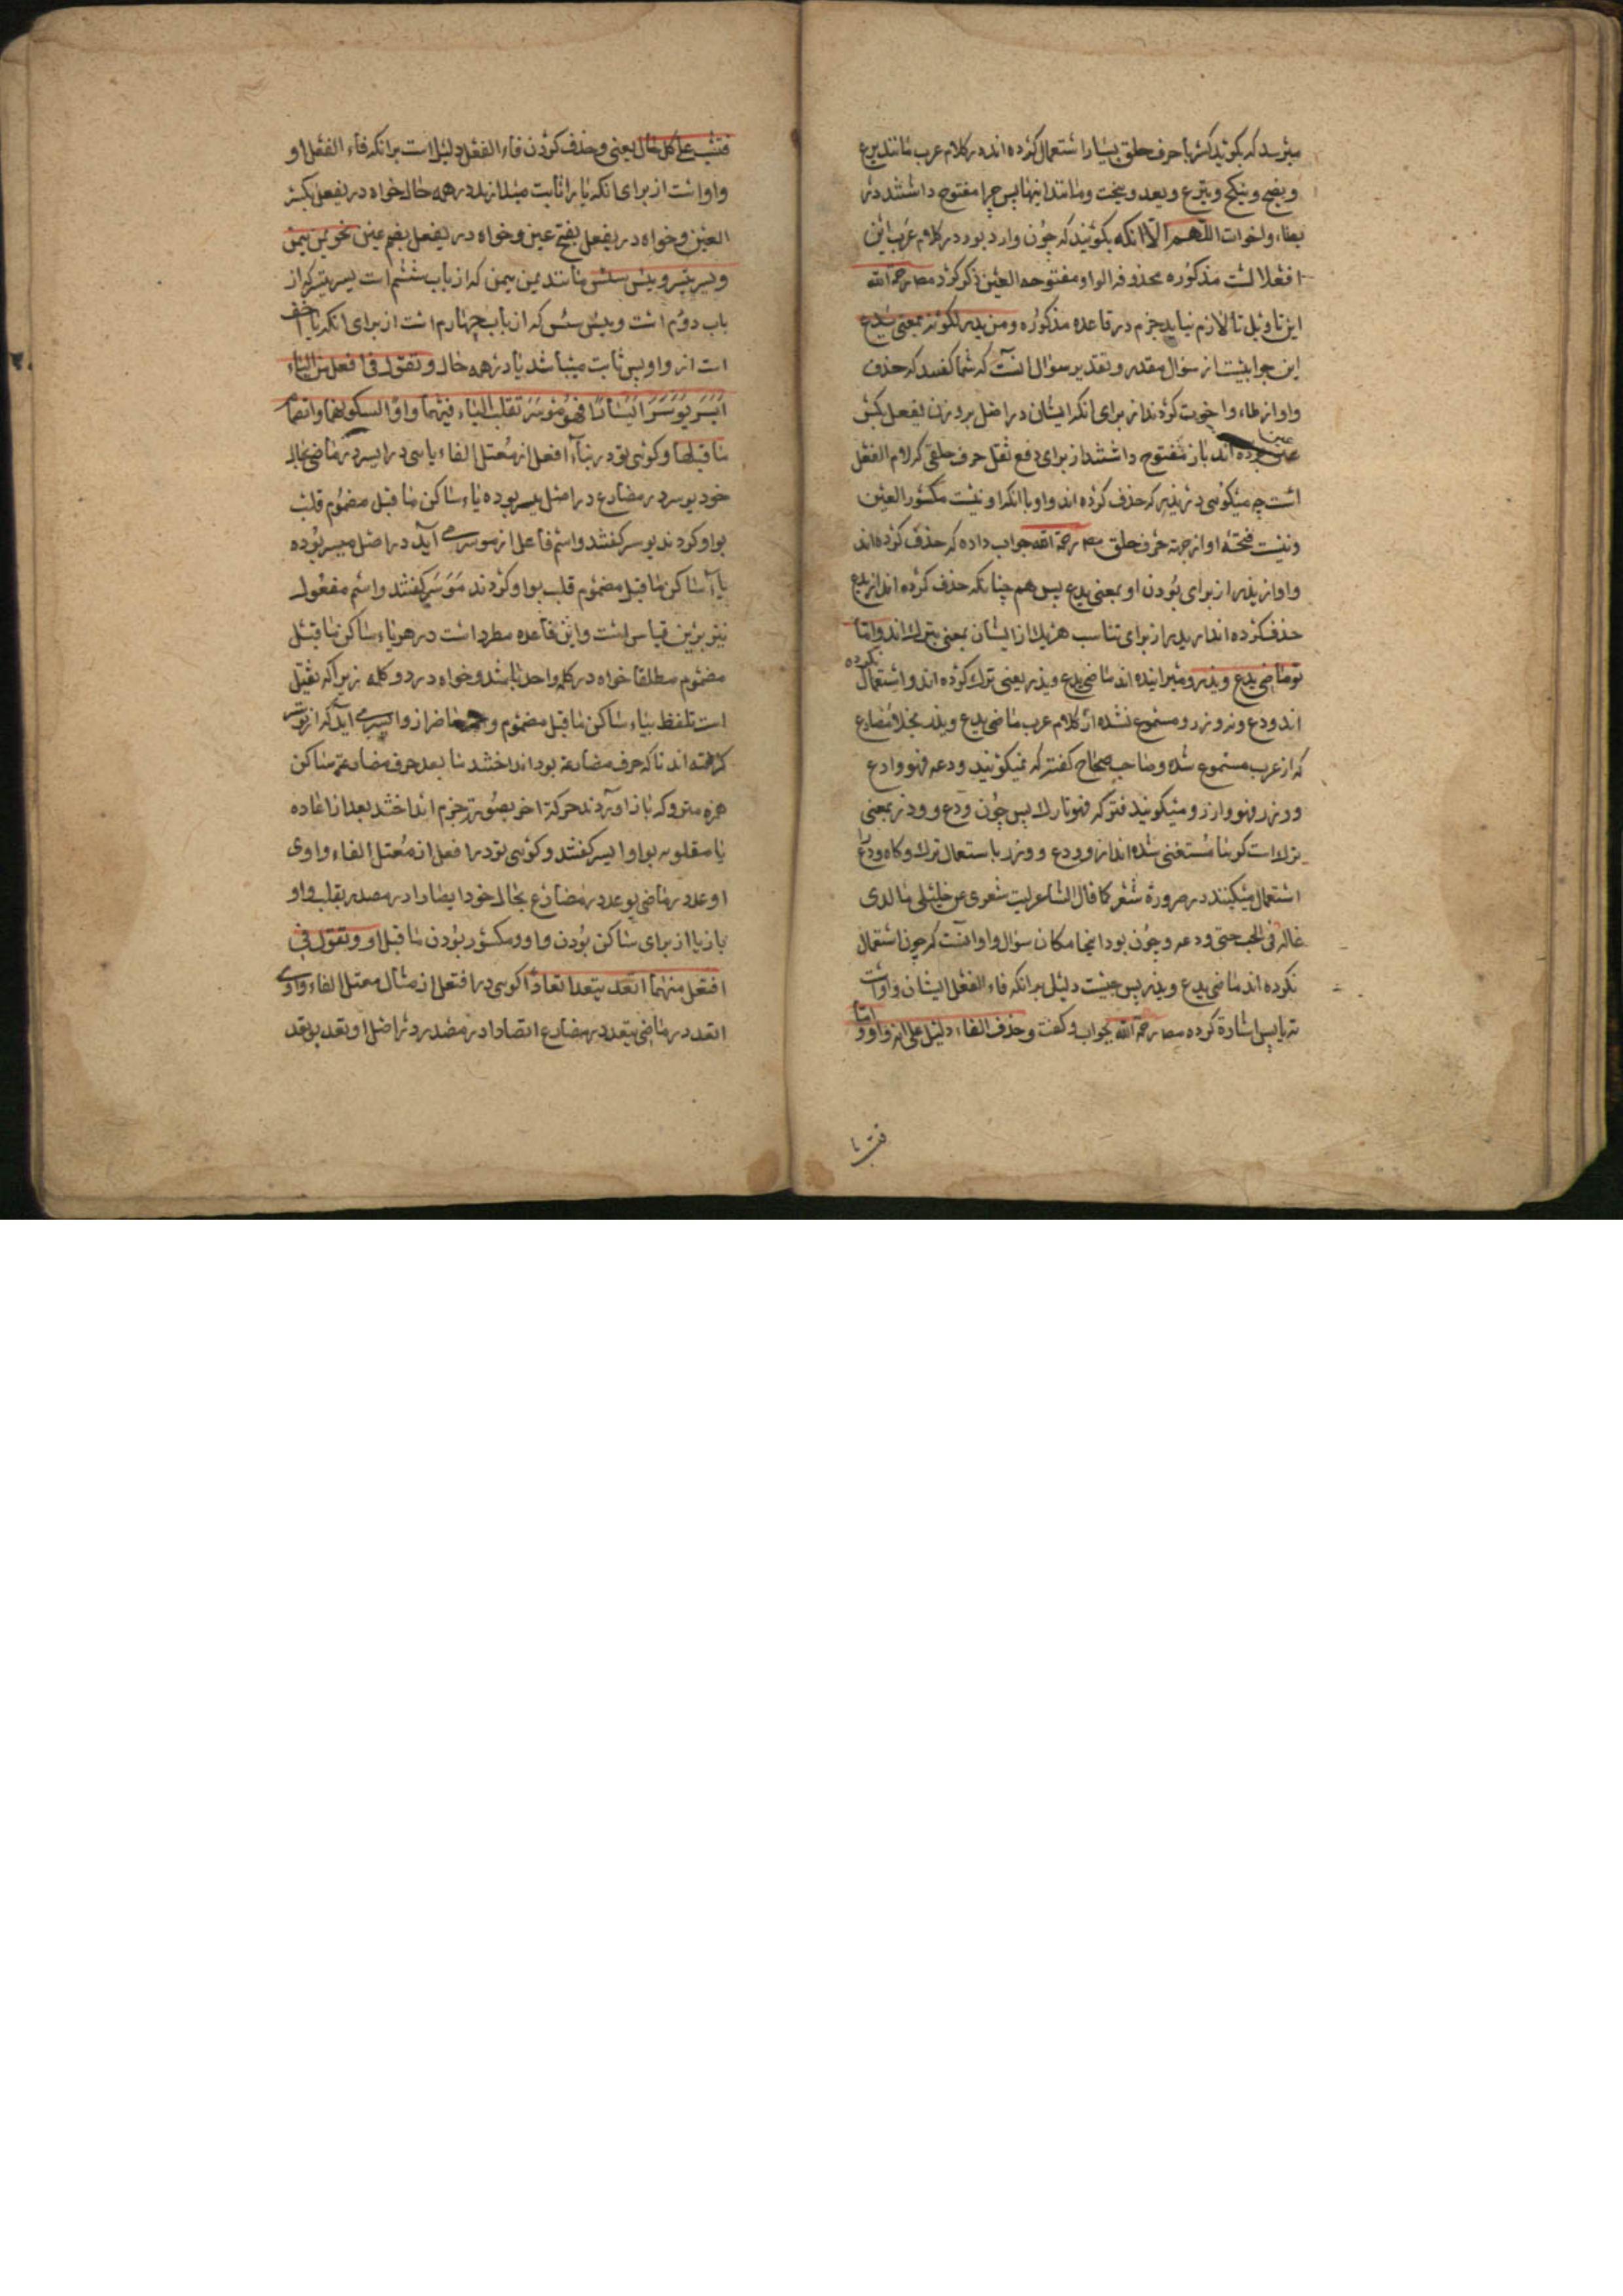 میرسد که بگوئید کثر با حرف حلق بسیار استعمال کرده اند در کلام عرب مانند یرع
و یضح و ینکح و ینزع و یعد و ینحت و مانند اینها پس چرا مفتوح داشتند در
یطاء و اخوات اللهم الا انکه بکوئید که چون وارد بود در کلام عرب این
افعلا لست مذکوره محذوفه الواو مفتوحه العین ذکر کرد مصا رحمة الله
این تاویل تا لازم نیاید جزم در قاعده مذکوره و من یذر لکونه بمعنی یدع
این جوابیست از سؤال مقدر و تقدیر سؤال انست که شما کفتید که حذف
واو از یطاء و اخوت کردند از برای انکه ایشان در اصل بر وزن یفعل بکسر
عین بوده اند باز مفتوح داشتند از برای دفع ثقل حرف حلقی که لام الفعل
است چه میکوئی در یذر که حذف کرده اند واو با انکه او نیست مکسور العین
و نیست فتحه او از جهة حرف حلق مصا رحمة الله جواب داده که حذف کرده اند
واو از یذر از برای بودن او بمعنی یدع پس هم چنانکه حذف کرده اند از یدع
حذف کرده اند از یذر از برای تناسب هر یک از ایشان بمعنی یترک اند و اماتو
ماضی یدع و یذر و میرانیده اند ماضی یدع و یذر یعنی ترک کرده اند و استعمال نکرده
اند ودع و نه وذر و مسموع نشده از کلام عرب ماضی یدع و یذر بخلا مضارع
که از عرب مسموع شده و صاحب صحاح کفته که نمیکویند ودعه فهو وادع
و وذر فهو واذر و میکویند ترکه فهو تارک پس چون ودع و وذر بمعنی
ترک است کویا مستغنی شده اند از ودع و وذر باستعمال ترک و کاه ودع را
استعمال میکنند در ضرورة شعر کما قال الشاعر لیت شعری عن خلیلی ما لذی
غاله فی الحب حتی ودعه و چون بود اینجا مکان سؤال و او انست که چون استعمال
نکرده اند ماضی یدع و یذر پس چیست دلیل بر انکه فاء الفعل ایشان واو است
نه یا پس اشارة کرده مصا رحمة الله بجواب و کفت و حذف الفاء دلیل علی انه واو و اما
فتثبت علی کل حال یعنی و حذف کردن فاء الفعل دلیل است بر انکه فاء الفعل او
واو است از برای انکه یا را ثابت میدارند در همه حال خواه در یفعل بکسر
العین و خواه در یفعل بفتح عین و خواه در یفعل بضم عین نحو یمن ییمن
و یسر ییسر و یئس ییئس مانند یمن ییمن که از باب ششم است یسر ییسر که از
باب دوم است و یئس ییئس که از باب چهارم است از برای انکه یا اخف
است از واو پس ثابت میباشد یا در همه حال و تقول فی افعل من الیاء
ایسر یوسر ایسارا فهو موسر تقلب الیاء فیهما واوا لسکونها و انضمام
ما قبلها و کوئی تو در بناء افعل از معتل الفاء یائی در ایسر در ماضی بحال
خود یوسر در مضارع در اصل ییسر بوده یاء ساکن ما قبل مضموم قلب
بواو کردند یوسر کفتند و اسم فاعل از موسر می آید در اصل میسر بوده
یاء ساکن ما قبل مضموم قلب بواو کردند موسر کفتند و اسم مفعول
نیز برین قیاس است و این قاعده مطرد است در هر یاء ساکن ما قبل
مضموم مطلقا خواه در کلمه واحد باشد و خواه در دو کلمه زیرا که ثقیل
است تلفظ بیاء ساکن ما قبل مضموم و حاضر از و ایسر می آید که از توسر
کرفته اند تا که حرف مضارعة بود انداختند ما بعد حرف مضارعة ساکن
همزه متروکه باز آوردند حرکة اخر بصورة جزم انداختند بعد از اعاده
یا مقلوبه بواو ایسر کفتند و کوئی تو در افعل از معتل الفاء واوی
اوعد در ماضی یوعد در مضارع بحال خود ایعادا در مصدر بقلب واو
بازیا از برای ساکن بودن واو و مکسور بودن ما قبل او و تقول فی
افتعل منهما اتعد یتعد اتعادا کوئی در افتعل از مثال معتل الفاء واوی
اتعد در ماضی یتعد در مضارع اتعادا در مصدر در اصل اوتعد یوتعد